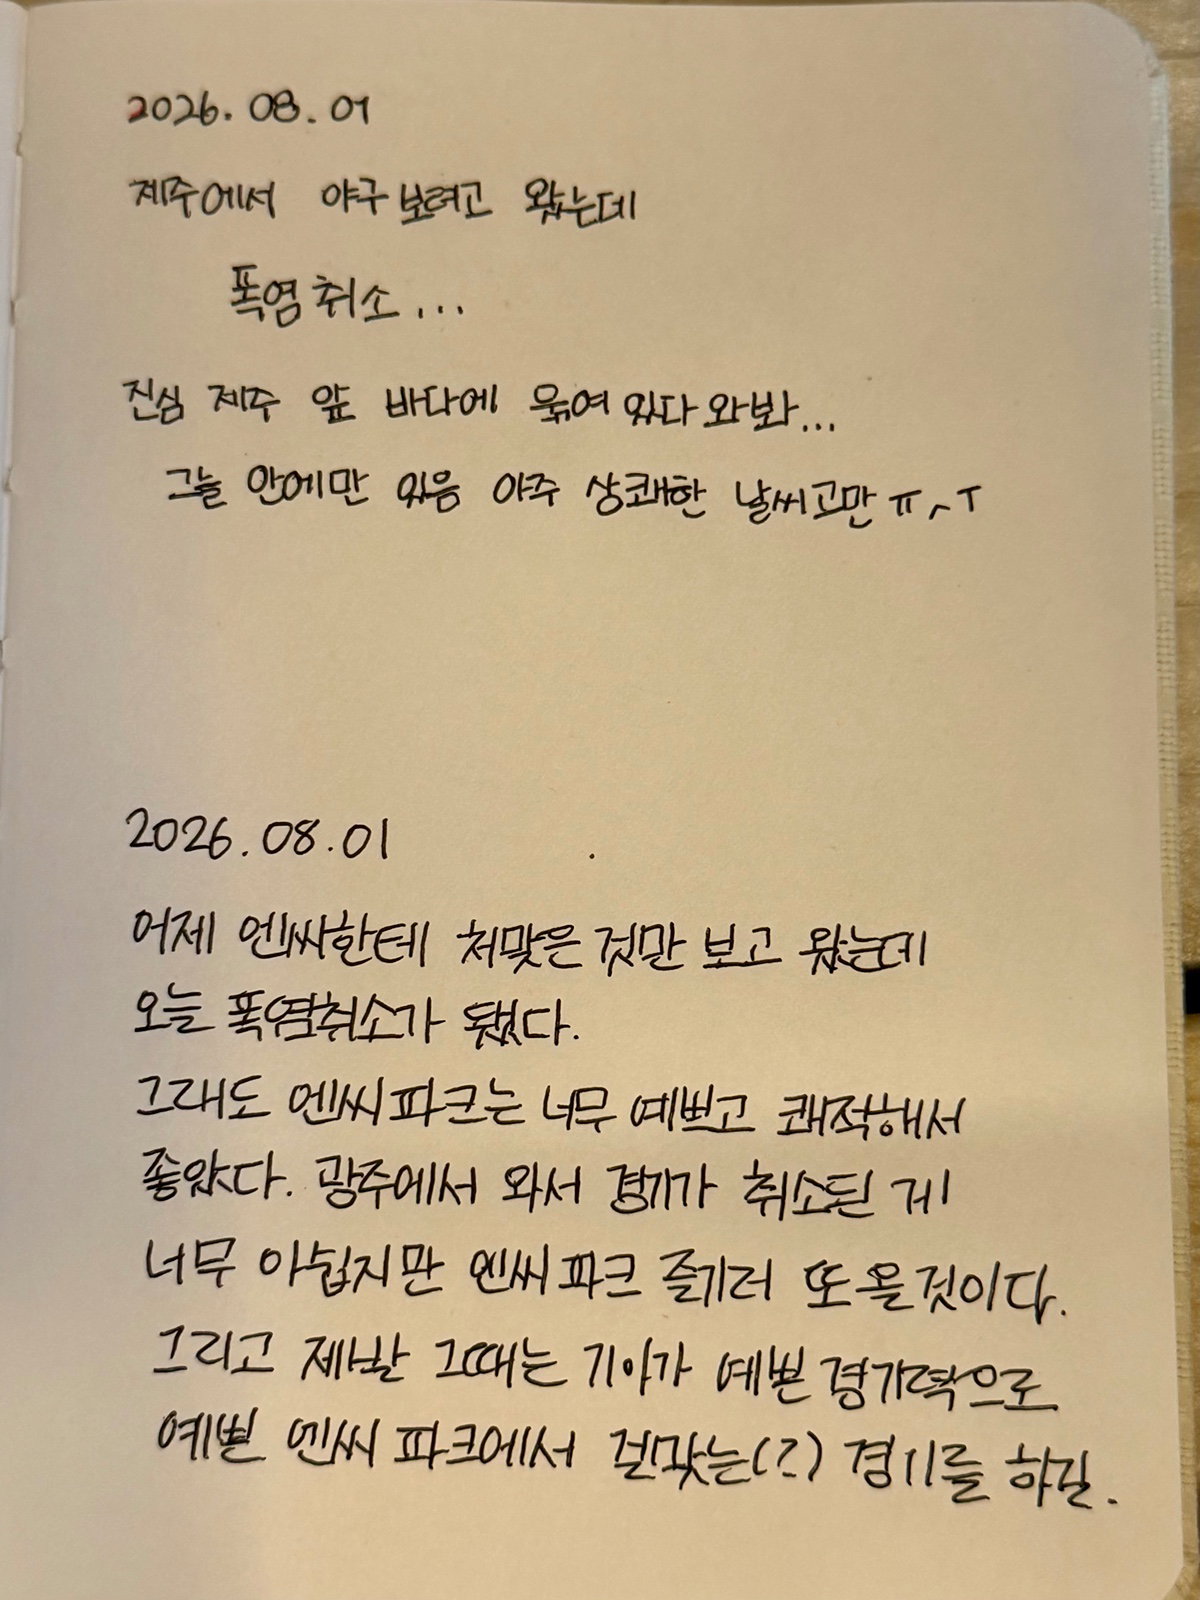 2026. 08. 01
제주에서 야구 보려고 왔는데
폭염취소...
진심 제주 앞 바다에 묶여있다 와봐...
그늘 안에만 있음 아주 상쾌한 날씨고만 ㅠㅅㅜ
2026.08.01
어제 엔씨한테 처맞은 것만 보고 왔는데
오늘 폭염취소가 됐다.
그래도 엔씨파크는 너무 예쁘고 쾌적해서
좋았다. 광주에서 와서 경기가 취소된 게
너무 아쉽지만 엔씨파크 즐기러 또 올것이다.
그리고 제발 그때는 기아가 예쁜 경기력으로
예쁜 엔씨파크에서 걸맞는(?) 경기를 하길.